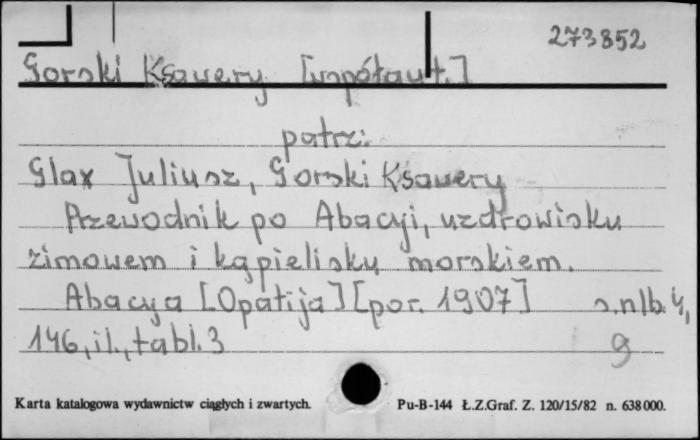 273852
Gorski Ksawery [współaut.]
patrz:
Glax Juliusz, Gorski Ksawery
Przewodnik po Abacyi, uzdrowisku
zimowem i kąpielisku morskiem.
Abacya [Opatija] [por. 1907] s.nlb. 4,
146, il., tabl. 3 g
Karta katalogowa wydawnictw ciągłych i zwartych. Pu-B-144 Ł.Z.Graf. Z. 120/15/82 n. 638000.